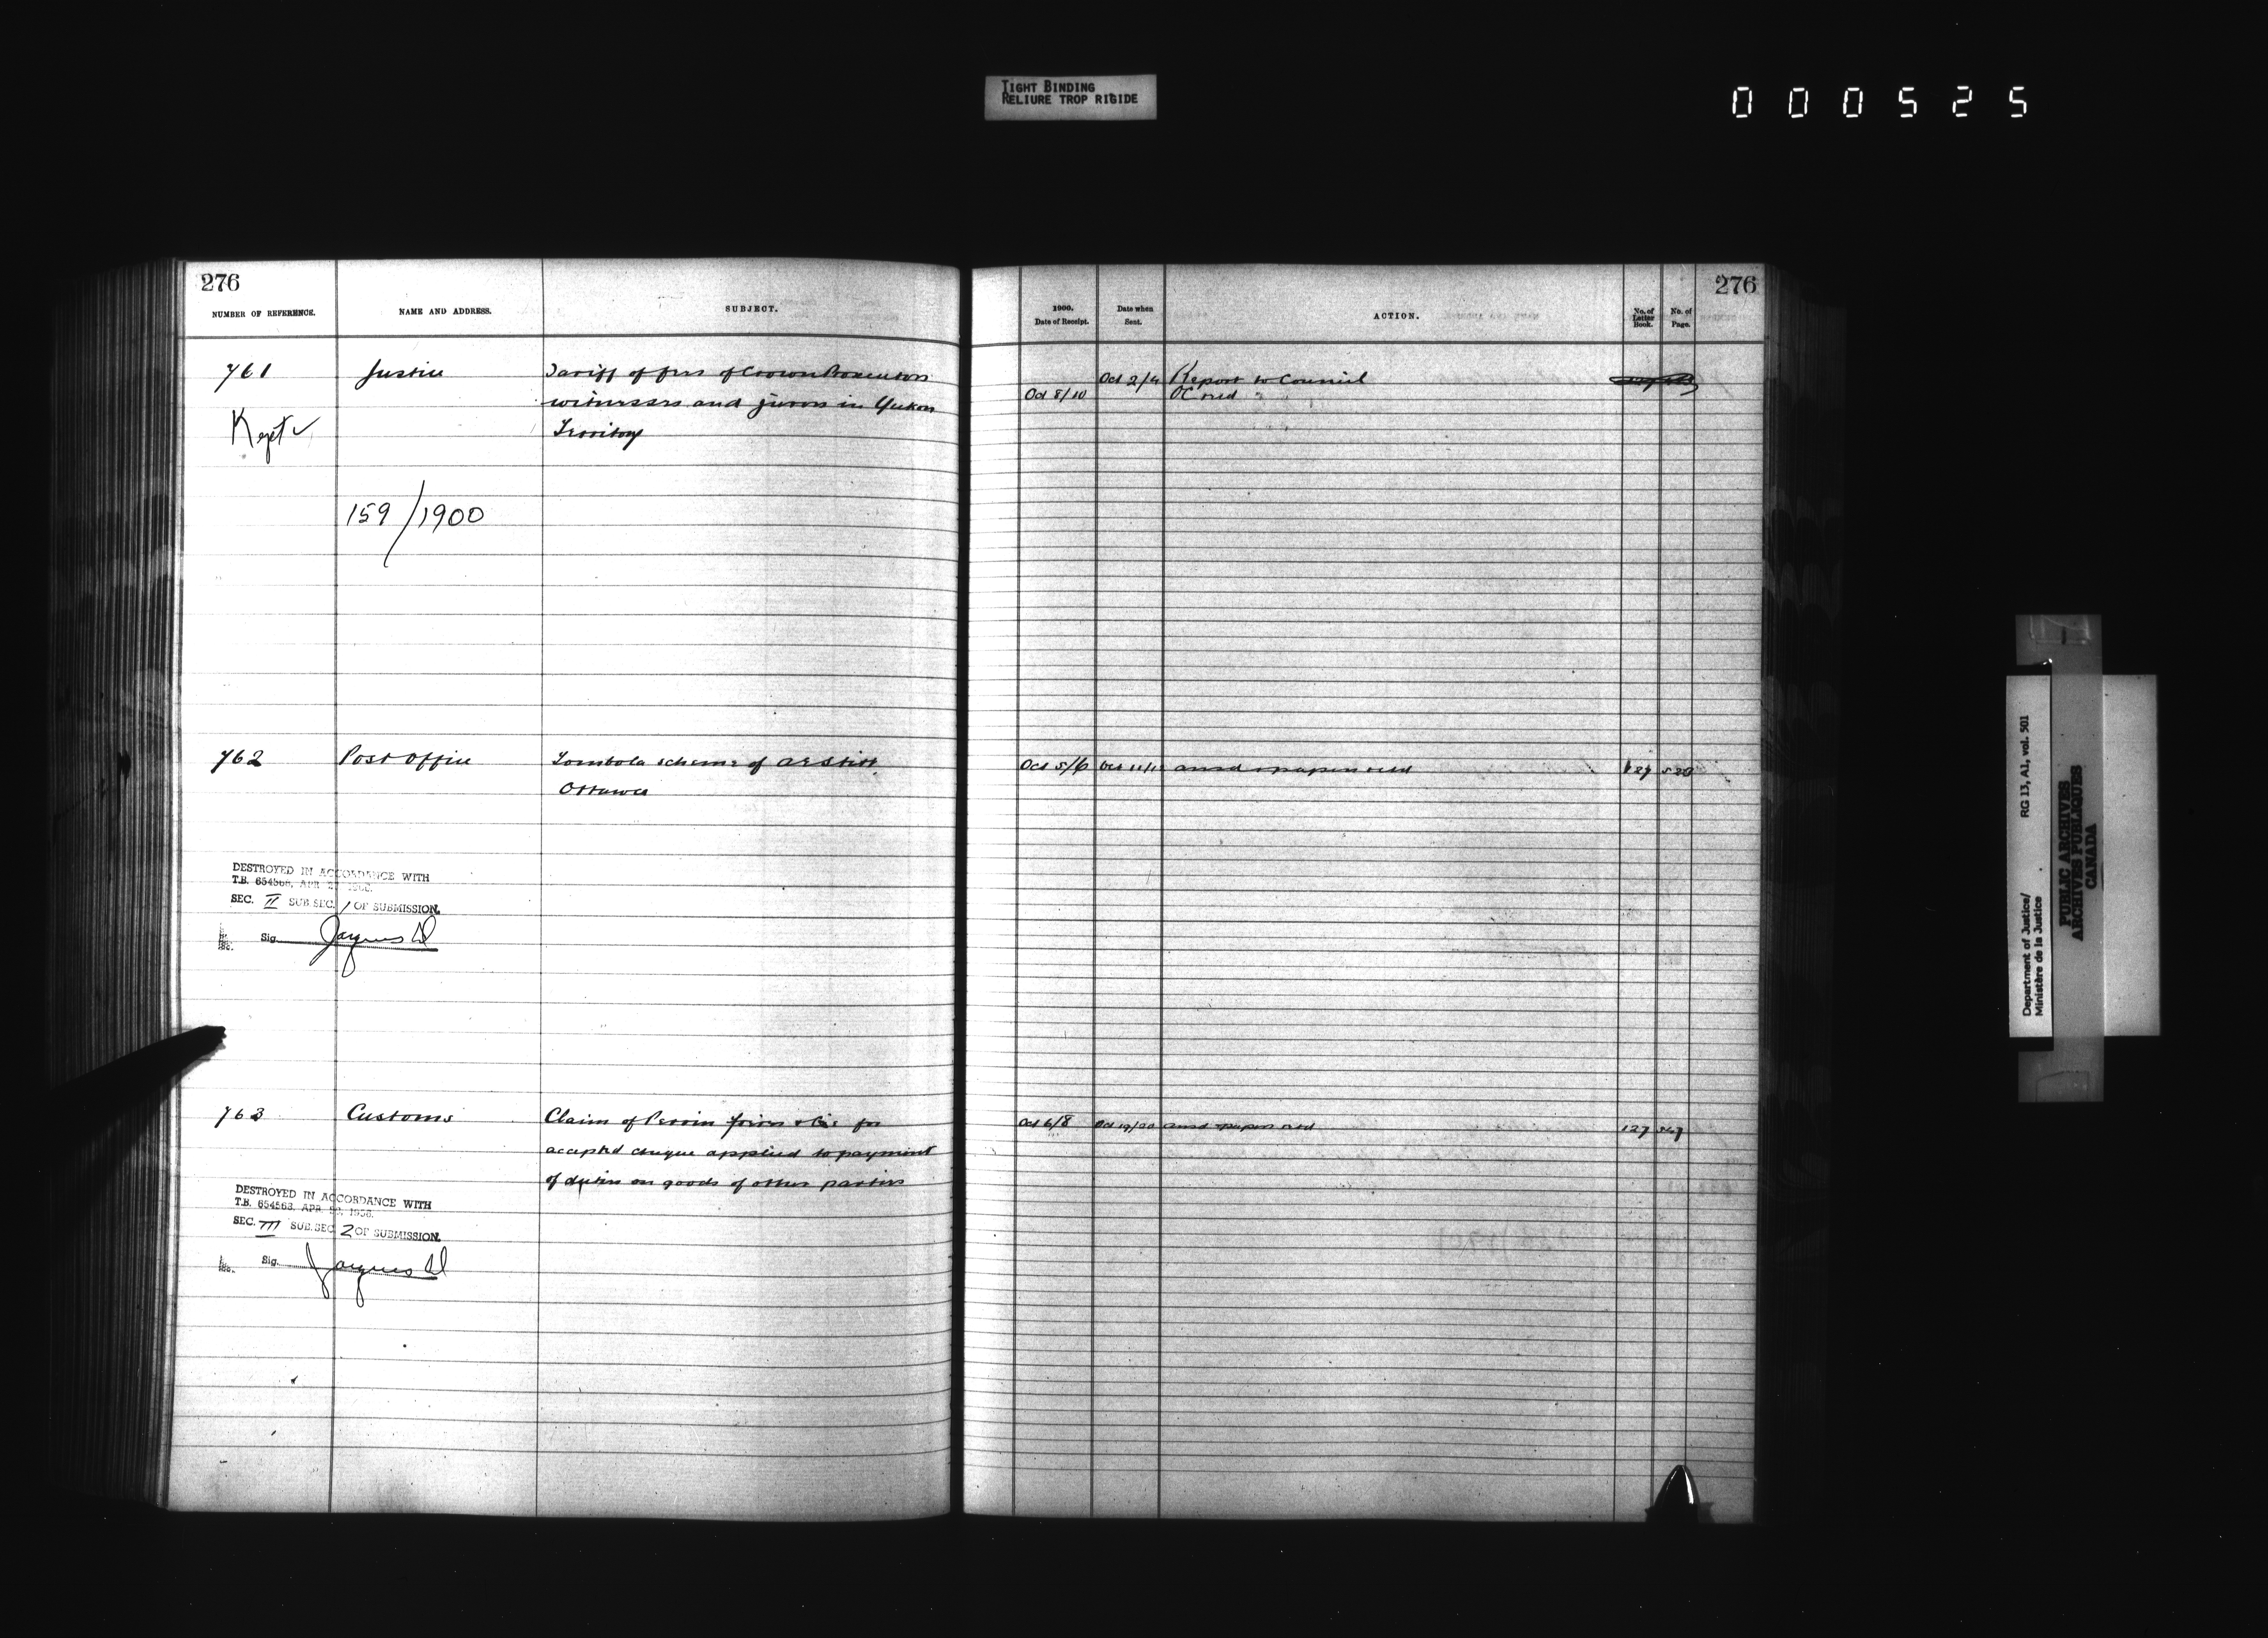 TIGHT BINDING
RELIURE TROP RIGIDE
000525
276
NUMBER OF REFERENCE.
NAME AND ADDRESS.
SUBJECT.
761
Justice
Tariff of fees of Crown Prosecutors
witnesses and jurors in Yukon
Territory
Kept ✓
159/1900
762
Post Office
Tombola scheme of
Ottawa
DESTROYED IN ACCORDANCE WITH
T.B. 654563, APR
SEC. II SUB.SEC. 1 OF SUBMISSION.
Sig.
763
Customs
Claim of Perrin Frères & Cie for
accepted cheque applied to payment
of duties on goods of other parties
DESTROYED IN ACCORDANCE WITH
T.B. 654563, APR.
SEC. III SUB.SEC. 2 OF SUBMISSION.
Sig.
276
1900.
Date of Receipt.
Date when
Sent.
ACTION.
No. of
Letter
Book.
No. of
Page.
Oct 2/4 Report to Council
Oct 8/10 OC recd
Oct 5/6 Oct 11/12 ansd & papers retd 127
Oct 6/8 Oct 19/20 ansd papers retd 127 567
Department of Justice/
Ministère de la Justice
RG 13, A1, vol. 501
PUBLIC ARCHIVES
ARCHIVES PUBLIQUES
CANADA